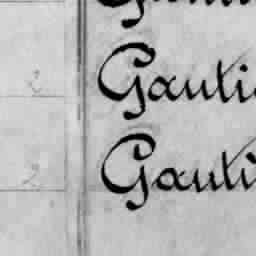 2 Gauti
2 Gauti